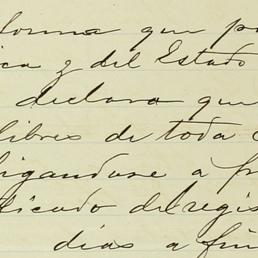 forma que p
ica y del Estado
declara que
libres de toda c
bligandose á pr
ificado del regis
dias a fin